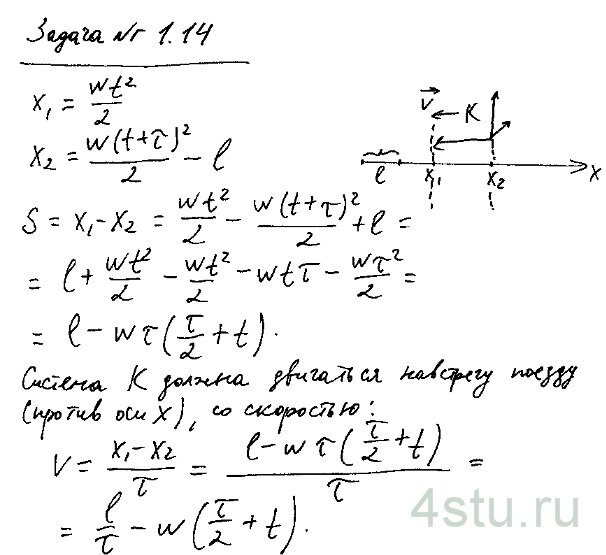 Задача № 1.14
x₁ = wt²/2
x₂ = w(t+τ)²/2 − l
S = x₁−x₂ = wt²/2 − w(t+τ)²/2 + l =
= l + wt²/2 − wt²/2 − wtτ − wτ²/2 =
= l − wτ(τ/2 + t).
v⃗ K
l x₁ x₂ x
Система K должна двигаться навстречу поезду
(против оси x), со скоростью:
V = x₁−x₂/τ = l−wτ(τ/2+t)/τ =
= l/τ − w(τ/2 + t).
4stu.ru